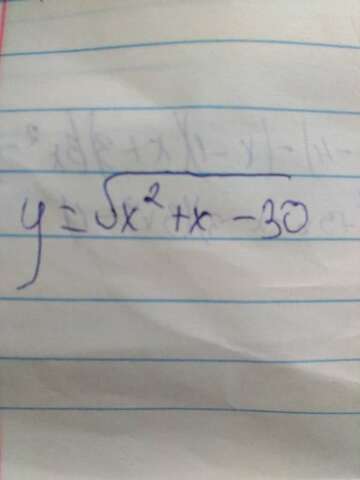 y = √x² + x - 30